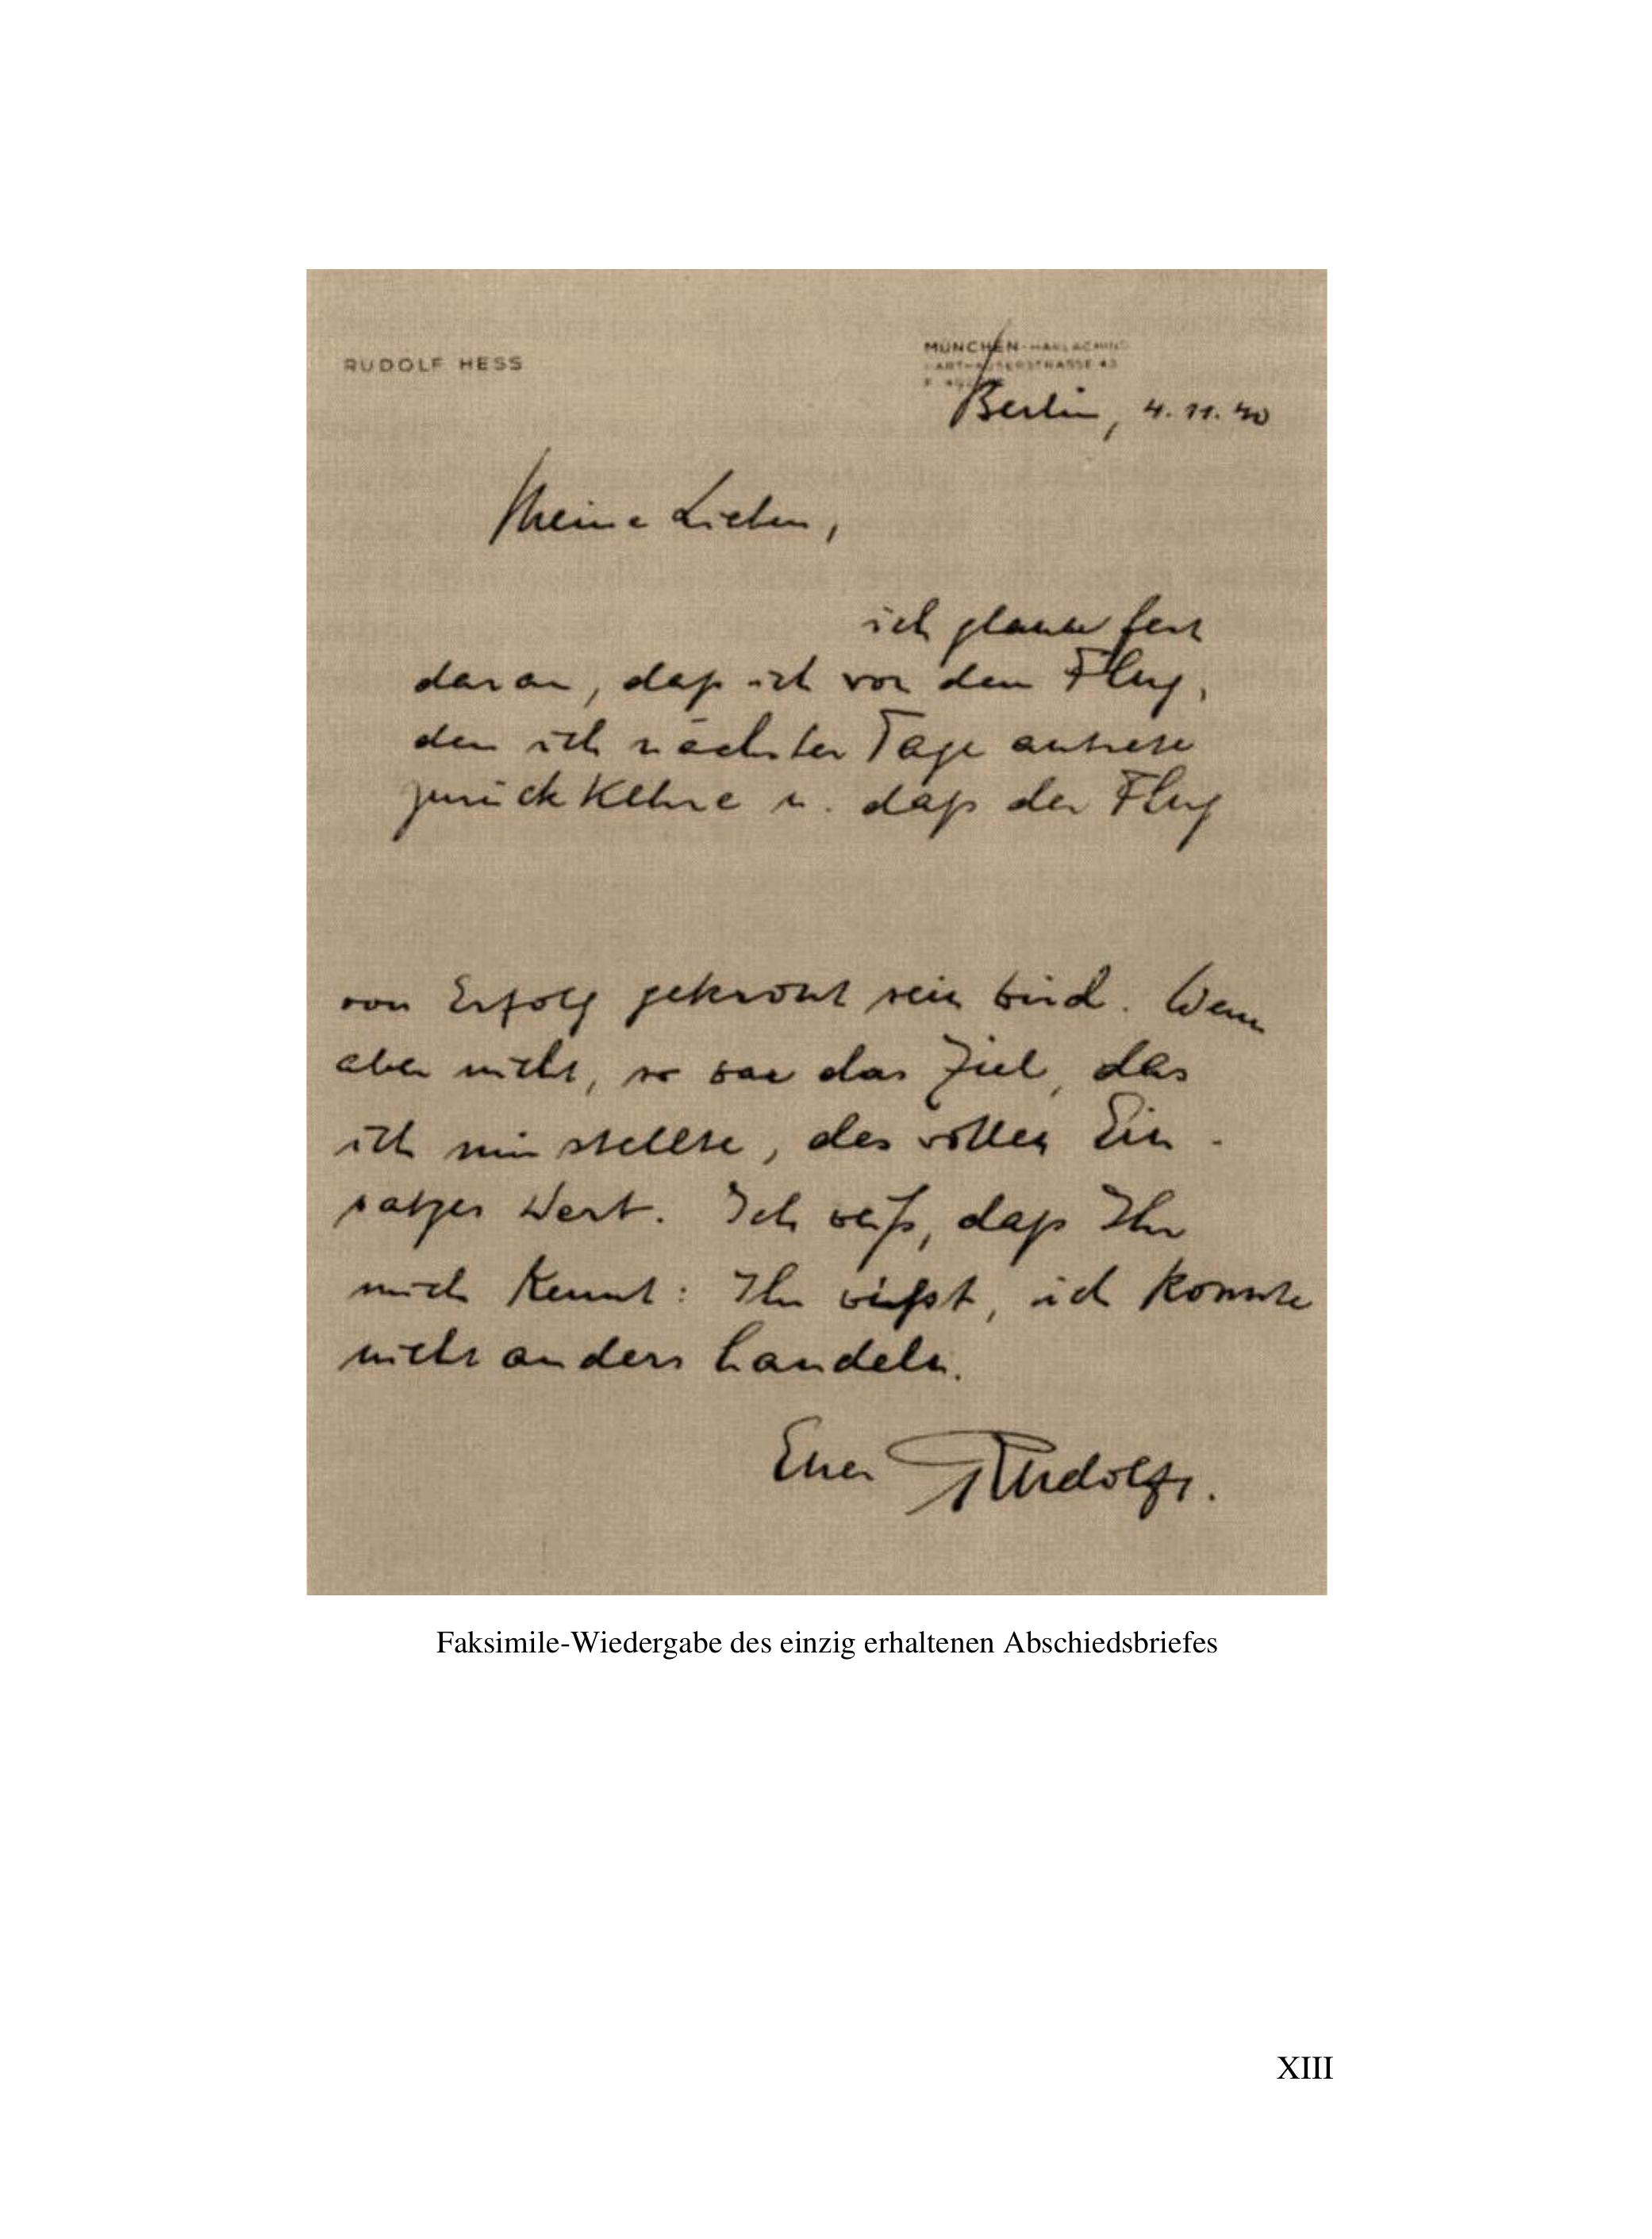 RUDOLF HESS
MÜNCHEN-HARLACHING
HARTHAUSERSTRASSE 43
Berlin, 4.11.40
Meine Lieben,
ich glaube fest
daran, daß ich von dem Flug,
den ich nächster Tage antrete
zurückkehre u. daß der Flug
von Erfolg gekrönt sein wird. Wenn
aber nicht, so war das Ziel, das
ich mir stellte, des vollen Ein-
satzes Wert. Ich weiß, daß Ihr
mich kennt: Ihr wißt, ich konnte
nicht anders handeln.
Euer Rudolf.
Faksimile-Wiedergabe des einzig erhaltenen Abschiedsbriefes
XIII